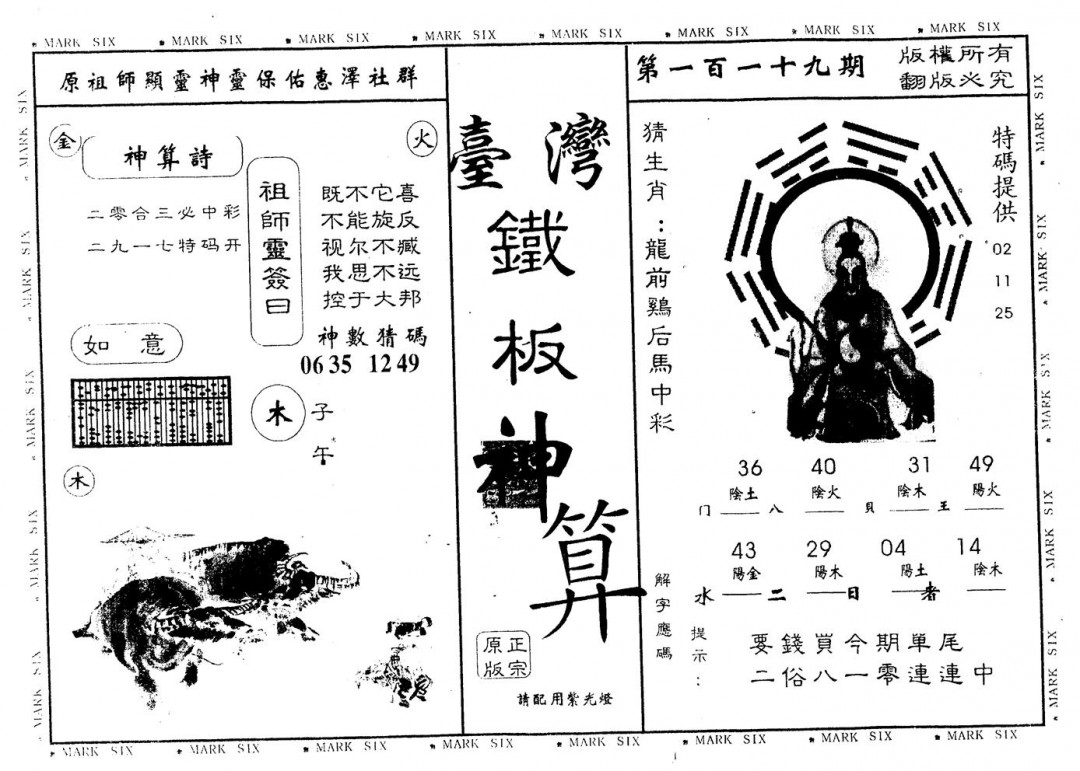 MARK SIX MARK SIX MARK SIX MARK SIX MARK SIX MARK SIX MARK SIX MARK SIX
原祖師顯靈神靈保佑惠澤社群
金
火
神算詩
二零合三必中彩
二九一七特码开
祖師靈簽曰
既不它喜
不能旋反
视尔不臧
我思不远
控于大邦
神數猜碼
06 35 12 49
如 意
木
子午
木
臺灣
鐵板神算
正宗原版
請配用紫光燈
第一百一十九期
版權所有
翻版必究
猜生肖：龍前鷄后馬中彩
特碼提供
02
11
25
36 40 31 49
陰土 陰火 陰木 陽火
门 八 貝 王
43 29 04 14
陽金 陽木 陽土 陰木
水 二 日 者
解字應碼
提示：
要錢買今期單尾
二俗八一零連連中
MARK SIX MARK SIX MARK SIX MARK SIX MARK SIX MARK SIX MARK SIX MARK SIX